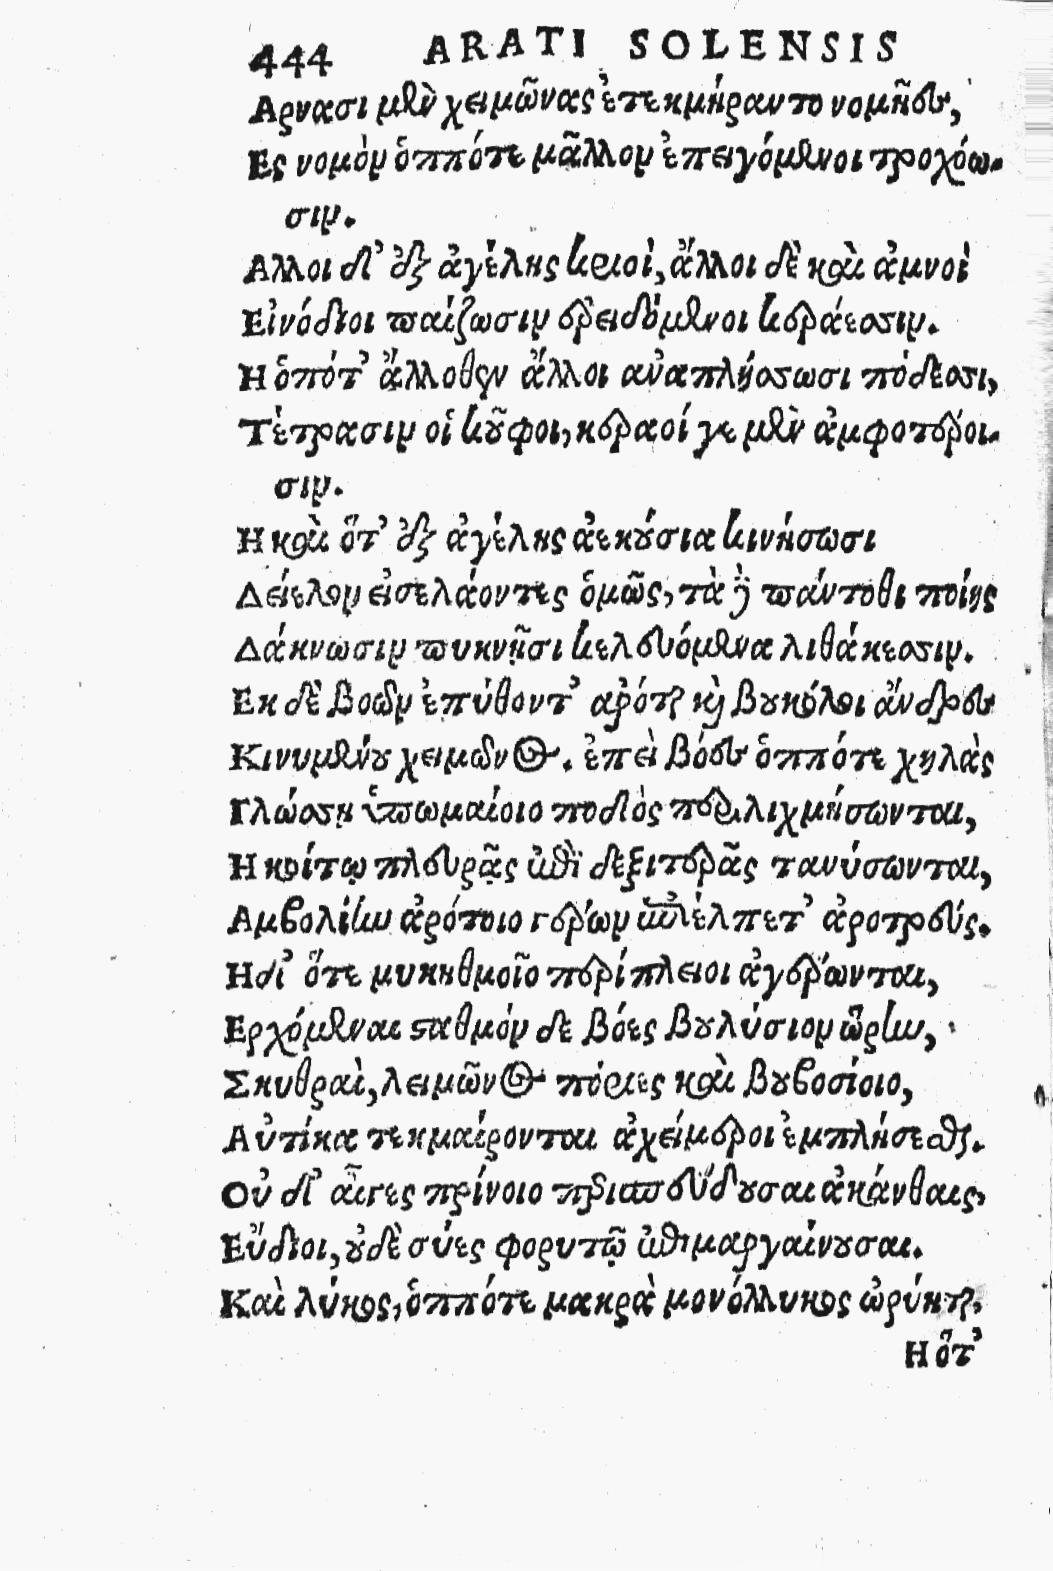 444 ARATI SOLENSIS
Αρνασι μὲν χειμῶνας ἐτεκμήραντο νομῆες,
Ες νομὸν ὁππότε μᾶλλον ἐπειγόμενοι τροχόω-
σιν.
Αλλοι δ' ἐξ ἀγέλης κριοὶ, ἄλλοι δὲ καὶ ἀμνοὶ
Εἰνόδιοι παίζωσιν ἐρειδόμενοι κεράεσσιν.
Η ὁπότ' ἄλλοθεν ἄλλοι ἀναπλήσσωσι πόδεσσι,
Τέτρασιν οἱ κοῦφοι, κεραοί γε μὲν ἀμφοτέροι-
σιν.
Η καὶ ὅτ' ἐξ ἀγέλης ἀεκούσια κινήσωσι
Δείελον εἰσελάοντες ὁμῶς, τὰ δὲ πάντοθι ποίης
Δάκνωσιν πυκνῇσι κελευόμενα λιθάκεσσιν.
Εκ δὲ βοῶν ἐπύθοντ' ἀρόται καὶ βουκόλοι ἄνδρες
Κινυμένου χειμῶνος. ἐπεὶ βόες ὁππότε χηλὰς
Γλώσσῃ ὑπωμαίοιο ποδὸς περιλιχμήσωνται,
Η κοίτῳ πλευρᾷς ἐπὶ δεξιτερᾶς τανύσωνται,
Αμβολίην ἀρότοιο γέρων ἐπιέλπετ' ἀροτρεύς.
Η δ' ὅτε μυκηθμοῖο περίπλειοι ἀγέρωνται,
Ερχόμεναι σταθμόν δε βόες βουλύσιον ὥρην,
Σκυθραὶ, λειμῶνος πόριες καὶ βουβοσίοιο,
Αὐτίκα τεκμαίρονται ἀχείμεροι ἐμπλήσεσθαι.
Οὐ δ' αἶγες πρίνοιο περισπεύδουσαι ἀκάνθαις,
Εὔδιοι, οὐδὲ σύες φορυτῷ ἐπιμαργαίνουσαι.
Καὶ λύκος, ὁππότε μακρὰ μονόλλυκος ὠρύηται,
Η ὅτ'